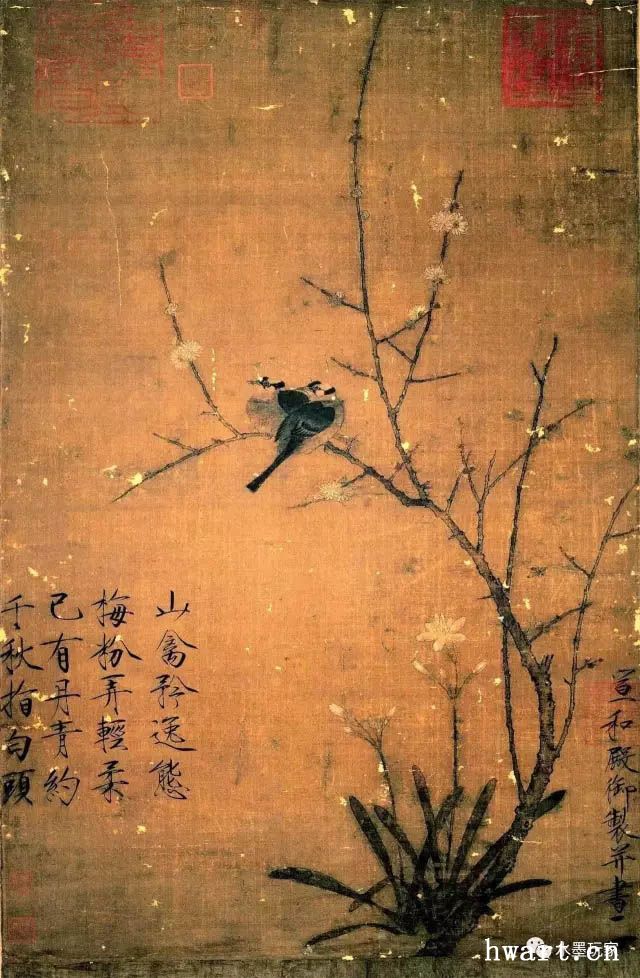 山禽矜逸態
梅粉弄輕柔
已有丹青約
千秋指白頭
宣和殿御製并書
水墨玩家
hwart.cn